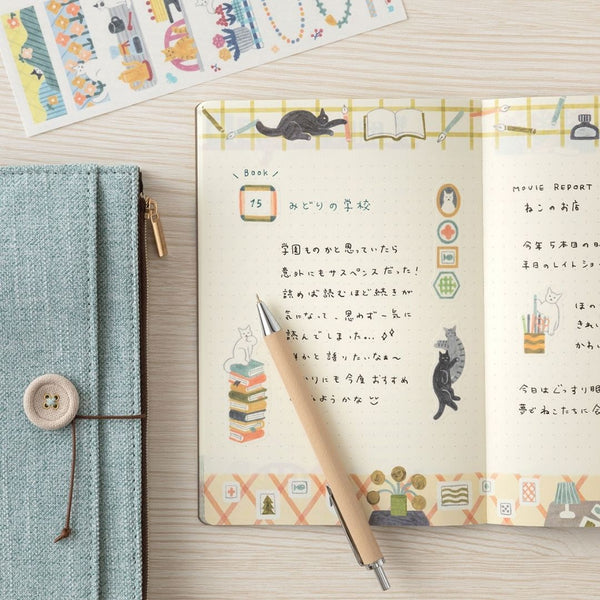 Book
15
みどりの学校
学園ものかと思っていたら
意外にもサスペンスだった!
読めば読むほど続きが
気になって、思わず一気に
読んでしまった...
かと語りたいなぁ〜
にも今度おすすめ
ようかな
MOVIE REPORT
ねこのお店
今年5本目の
平日のレイトショー
ほの
きれい
かわい
今日はぐっすり眠
夢でねこたちに会